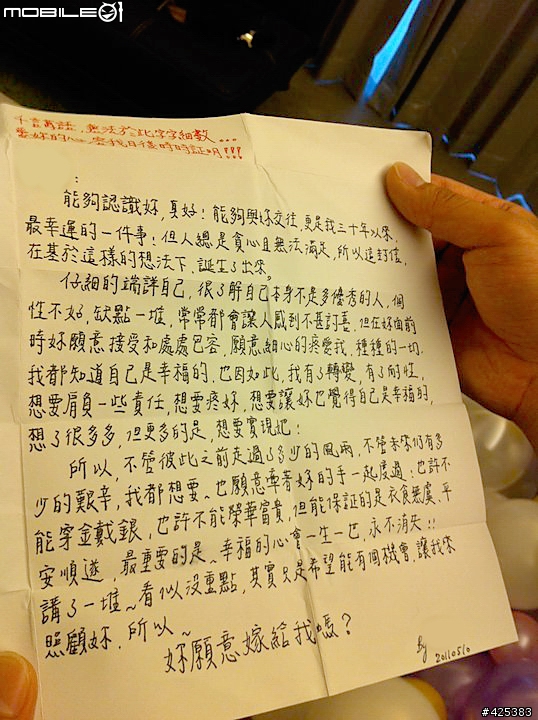 MOBILE01
千言萬語,無法於此字字細數...
愛妳的心.容我日後時時証明!!!
:
能夠認識妳,真好!能夠與妳交往,更是我三十年以來,
最幸運的一件事!但人總是貪心且無法滿足,所以這封信,
在基於這樣的想法下,誕生了出來。
仔細的端詳自己,很了解自己本身不是多優秀的人,個
性不好.缺點一堆,常常都會讓人感到不甚討喜.但在妳面前
時妳願意接受和處處包容,願意細心的疼愛我.種種的一切.
我都知道自己是幸福的.也因如此,我有了轉變,有了耐性,
想要肩負一些責任,想要疼妳,想要讓妳也覺得自己是幸福的,
想了很多多,但更多的是,想要實現她!
所以,不管彼此之前走過了多少的風雨,不管未來仍有多
少的艱辛,我都想要~也願意牽著妳的手一起度過!也許不
能穿金戴銀,也許不能榮華富貴,但能保証的是衣食無虞、平
安順遂,最重要的是~幸福的心會一生一世,永不消失!!
講了一堆~看似沒重點,其實只是希望能有個機會,讓我來
照顧妳,所以~
妳願意嫁給我嗎?
By 20110510
#425383